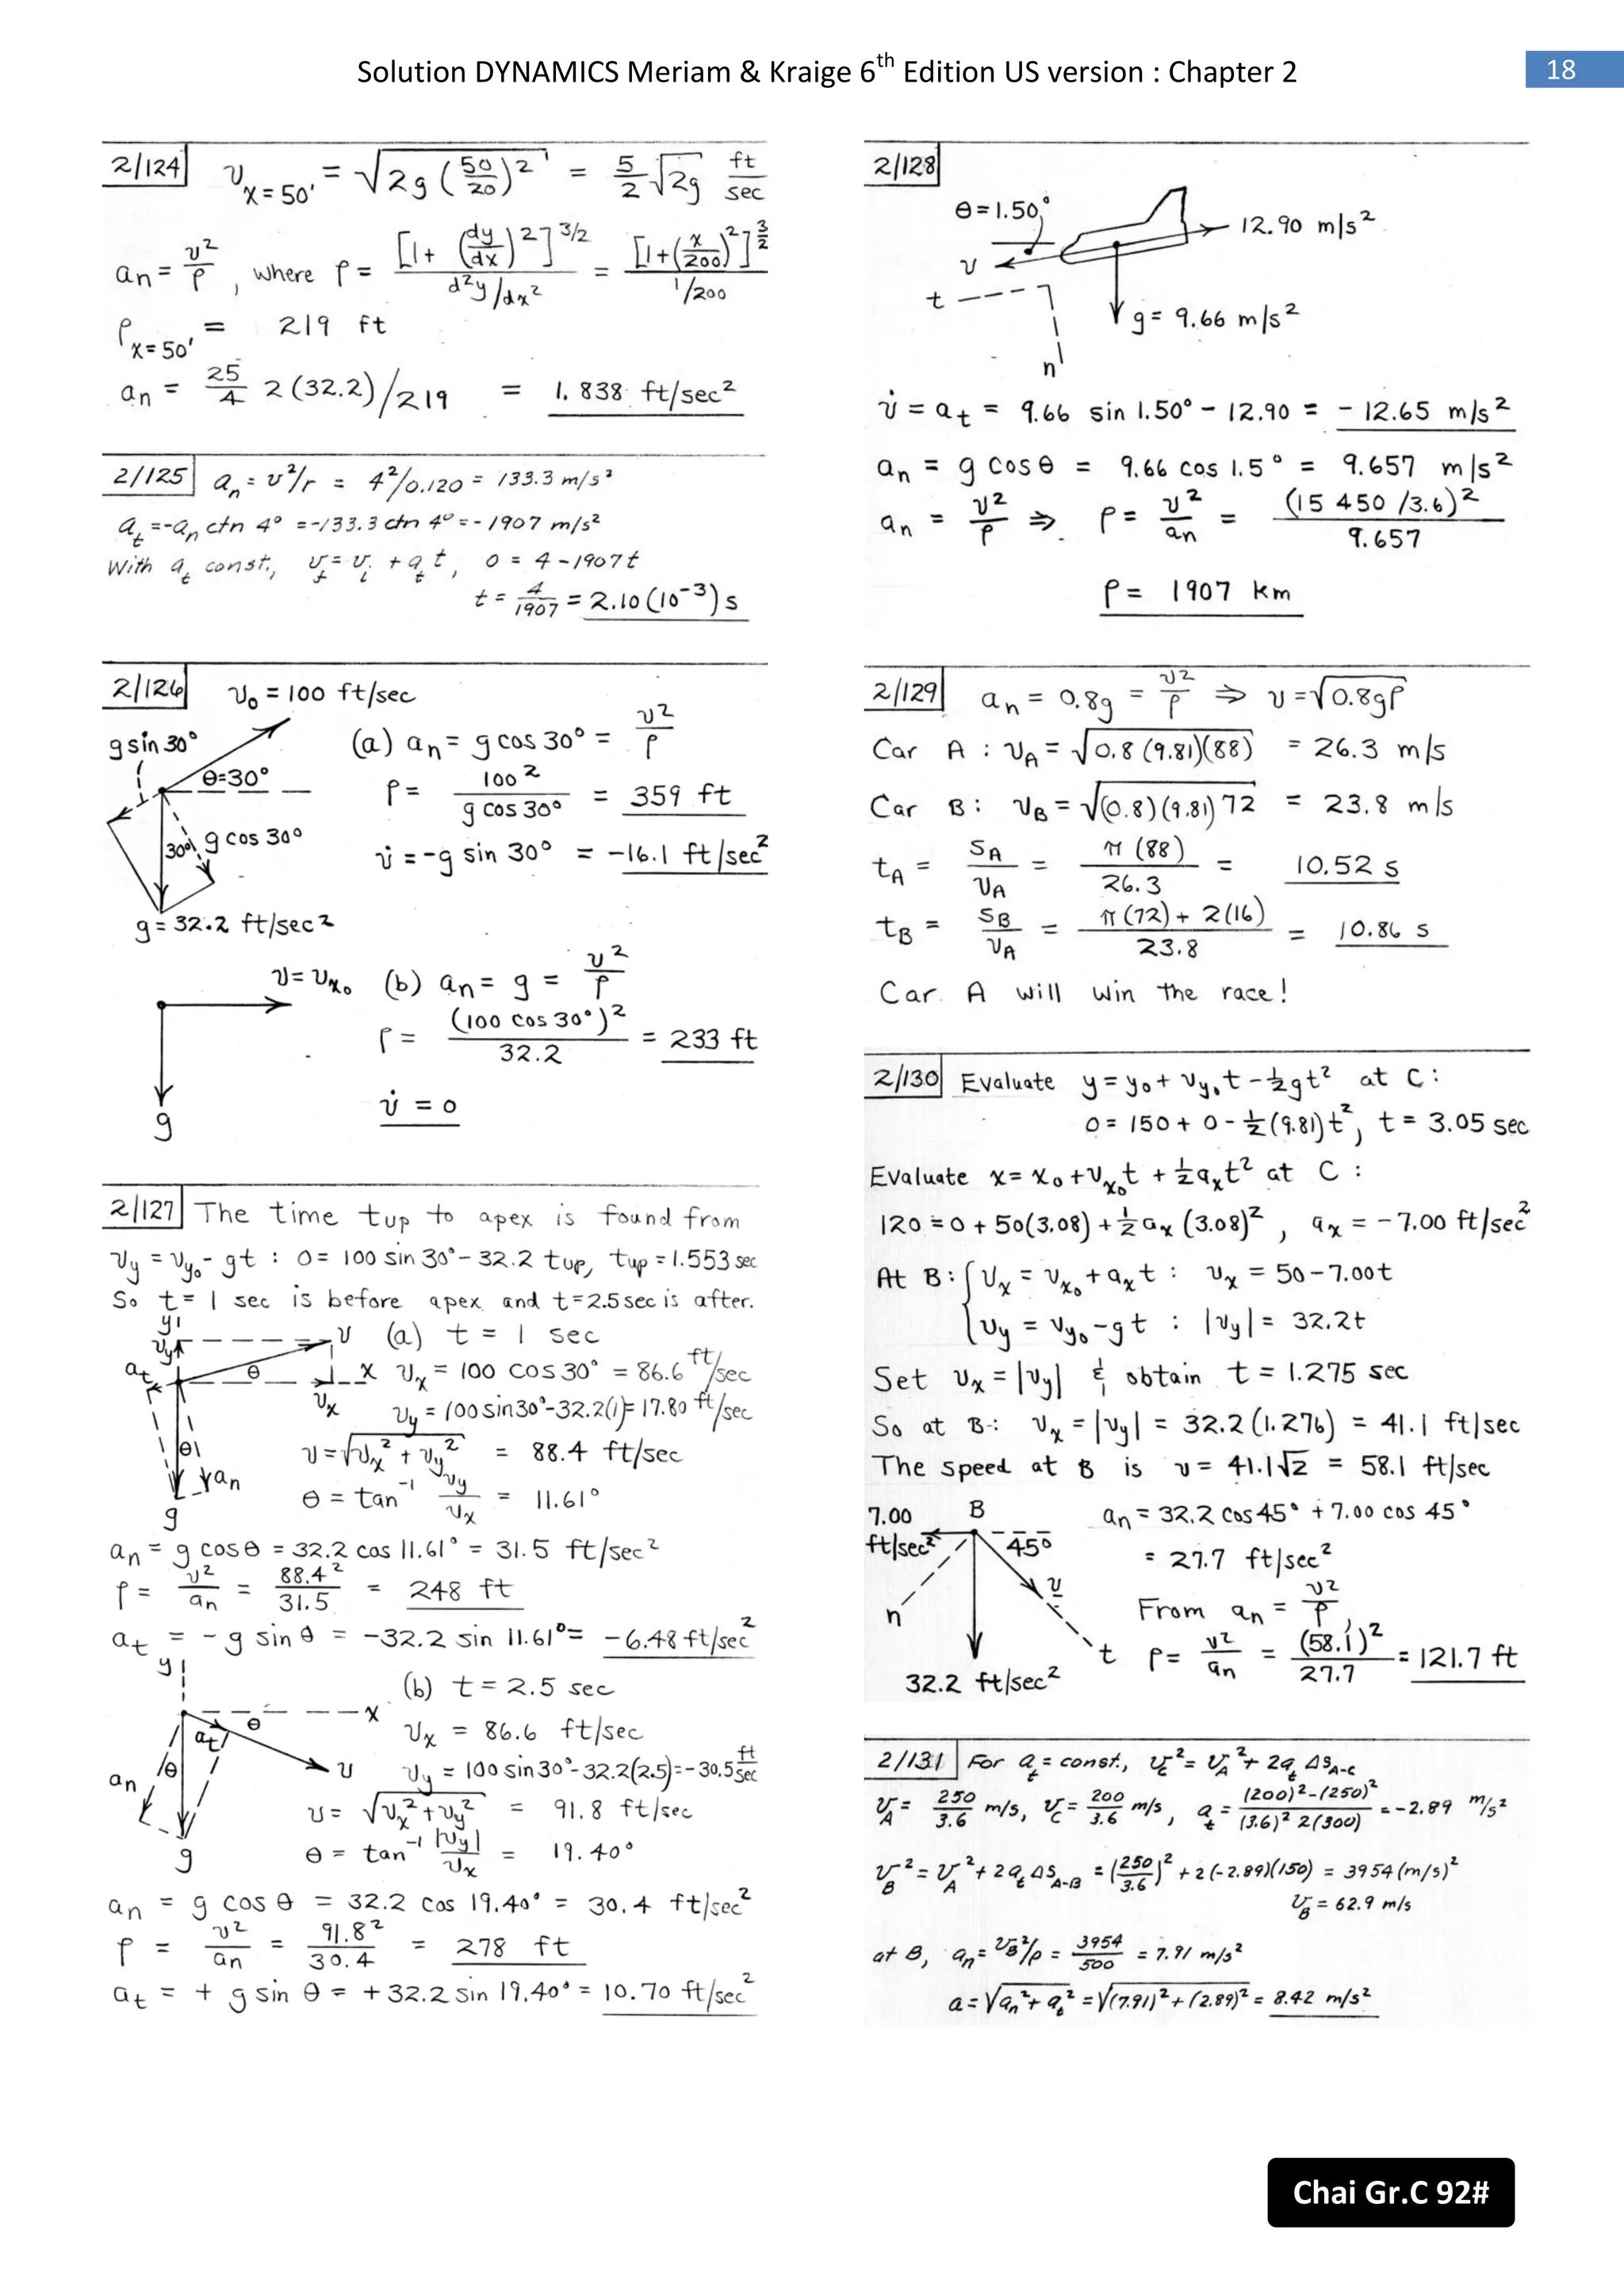 Solution DYNAMICS Meriam & Kraige 6th Edition US version : Chapter 2
18
2/124 v_{x=50'} = √(2g (50/20)²) = 5/2 √2g ft/sec
a_n = v²/ρ , where ρ = [1 + (dy/dx)²]^{3/2} / (d²y/dx²) = [1+(x/200)²]^{3/2} / (1/200)
ρ_{x=50'} = 219 ft
a_n = 25/4 2(32.2)/219 = 1.838 ft/sec²
2/125 a_n = v²/r = 4²/0.120 = 133.3 m/s²
a_t = -a_n ctn 4° = -133.3 ctn 4° = -1907 m/s²
With a_t const., v_f = v_i + a_t t , 0 = 4 - 1907t
t = 4/1907 = 2.10(10⁻³) s
2/126 v₀ = 100 ft/sec
g sin 30°
θ=30°
30°
g cos 30°
g = 32.2 ft/sec²
(a) a_n = g cos 30° = v²/ρ
ρ = 100²/(g cos 30°) = 359 ft
v̇ = -g sin 30° = -16.1 ft/sec²
v = v_{x₀}
g
(b) a_n = g = v²/ρ
ρ = (100 cos 30°)²/32.2 = 233 ft
v̇ = 0
2/127 The time t_up to apex is found from
v_y = v_{y₀} - gt : 0 = 100 sin 30° - 32.2 t_up, t_up = 1.553 sec
So t = 1 sec is before apex and t = 2.5 sec is after.
y
v_y
v
a_t
θ
x
v_x
θ
a_n
g
(a) t = 1 sec
v_x = 100 cos 30° = 86.6 ft/sec
v_y = 100 sin 30° - 32.2(1) = 17.80 ft/sec
v = √(v_x² + v_y²) = 88.4 ft/sec
θ = tan⁻¹ v_y/v_x = 11.61°
a_n = g cos θ = 32.2 cos 11.61° = 31.5 ft/sec²
ρ = v²/a_n = 88.4²/31.5 = 248 ft
a_t = - g sin θ = -32.2 sin 11.61° = -6.48 ft/sec²
y
x
θ
a_t
θ
v
a_n
g
(b) t = 2.5 sec
v_x = 86.6 ft/sec
v_y = 100 sin 30° - 32.2(2.5) = -30.5 ft/sec
v = √(v_x² + v_y²) = 91.8 ft/sec
θ = tan⁻¹ |v_y|/v_x = 19.40°
a_n = g cos θ = 32.2 cos 19.40° = 30.4 ft/sec²
ρ = v²/a_n = 91.8²/30.4 = 278 ft
a_t = + g sin θ = +32.2 sin 19.40° = 10.70 ft/sec²
2/128
θ = 1.50°
12.90 m/s²
v
t
n
g = 9.66 m/s²
v̇ = a_t = 9.66 sin 1.50° - 12.90 = - 12.65 m/s²
a_n = g cos θ = 9.66 cos 1.5° = 9.657 m/s²
a_n = v²/ρ ⇒ ρ = v²/a_n = (15 450/3.6)²/9.657
ρ = 1907 km
2/129 a_n = 0.8g = v²/ρ ⇒ v = √0.8gρ
Car A : v_A = √(0.8 (9.81)(88)) = 26.3 m/s
Car B : v_B = √((0.8)(9.81) 72) = 23.8 m/s
t_A = s_A/v_A = π(88)/26.3 = 10.52 s
t_B = s_B/v_A = (π(72) + 2(16))/23.8 = 10.86 s
Car A will win the race!
2/130 Evaluate y = y₀ + v_{y₀}t - ½gt² at C :
0 = 150 + 0 - ½(9.81)t², t = 3.05 sec
Evaluate x = x₀ + v_{x₀}t + ½a_x t² at C :
120 = 0 + 50(3.08) + ½a_x (3.08)² , a_x = -7.00 ft/sec²
At B : { v_x = v_{x₀} + a_x t : v_x = 50 - 7.00t
v_y = v_{y₀} - gt : |v_y| = 32.2t
Set v_x = |v_y| & obtain t = 1.275 sec
So at B : v_x = |v_y| = 32.2 (1.276) = 41.1 ft/sec
The speed at B is v = 41.1√2 = 58.1 ft/sec
7.00 ft/sec²
B
45°
v
n
t
32.2 ft/sec²
a_n = 32.2 cos 45° + 7.00 cos 45°
= 27.7 ft/sec²
From a_n = v²/ρ ,
ρ = v²/a_n = (58.1)²/27.7 = 121.7 ft
2/131 For a_t = const., v_C² = v_A² + 2a_t Δs_{A-C}
v_A = 250/3.6 m/s, v_C = 200/3.6 m/s , a_t = ((200)²-(250)²)/((3.6)² 2(300)) = -2.89 m/s²
v_B² = v_A² + 2a_t Δs_{A-B} = (250/3.6)² + 2(-2.89)(150) = 3954 (m/s)²
v_B = 62.9 m/s
at B, a_n = v_B²/ρ = 3954/500 = 7.91 m/s²
a = √(a_n² + a_t²) = √((7.91)² + (2.89)²) = 8.42 m/s²
Chai Gr.C 92#